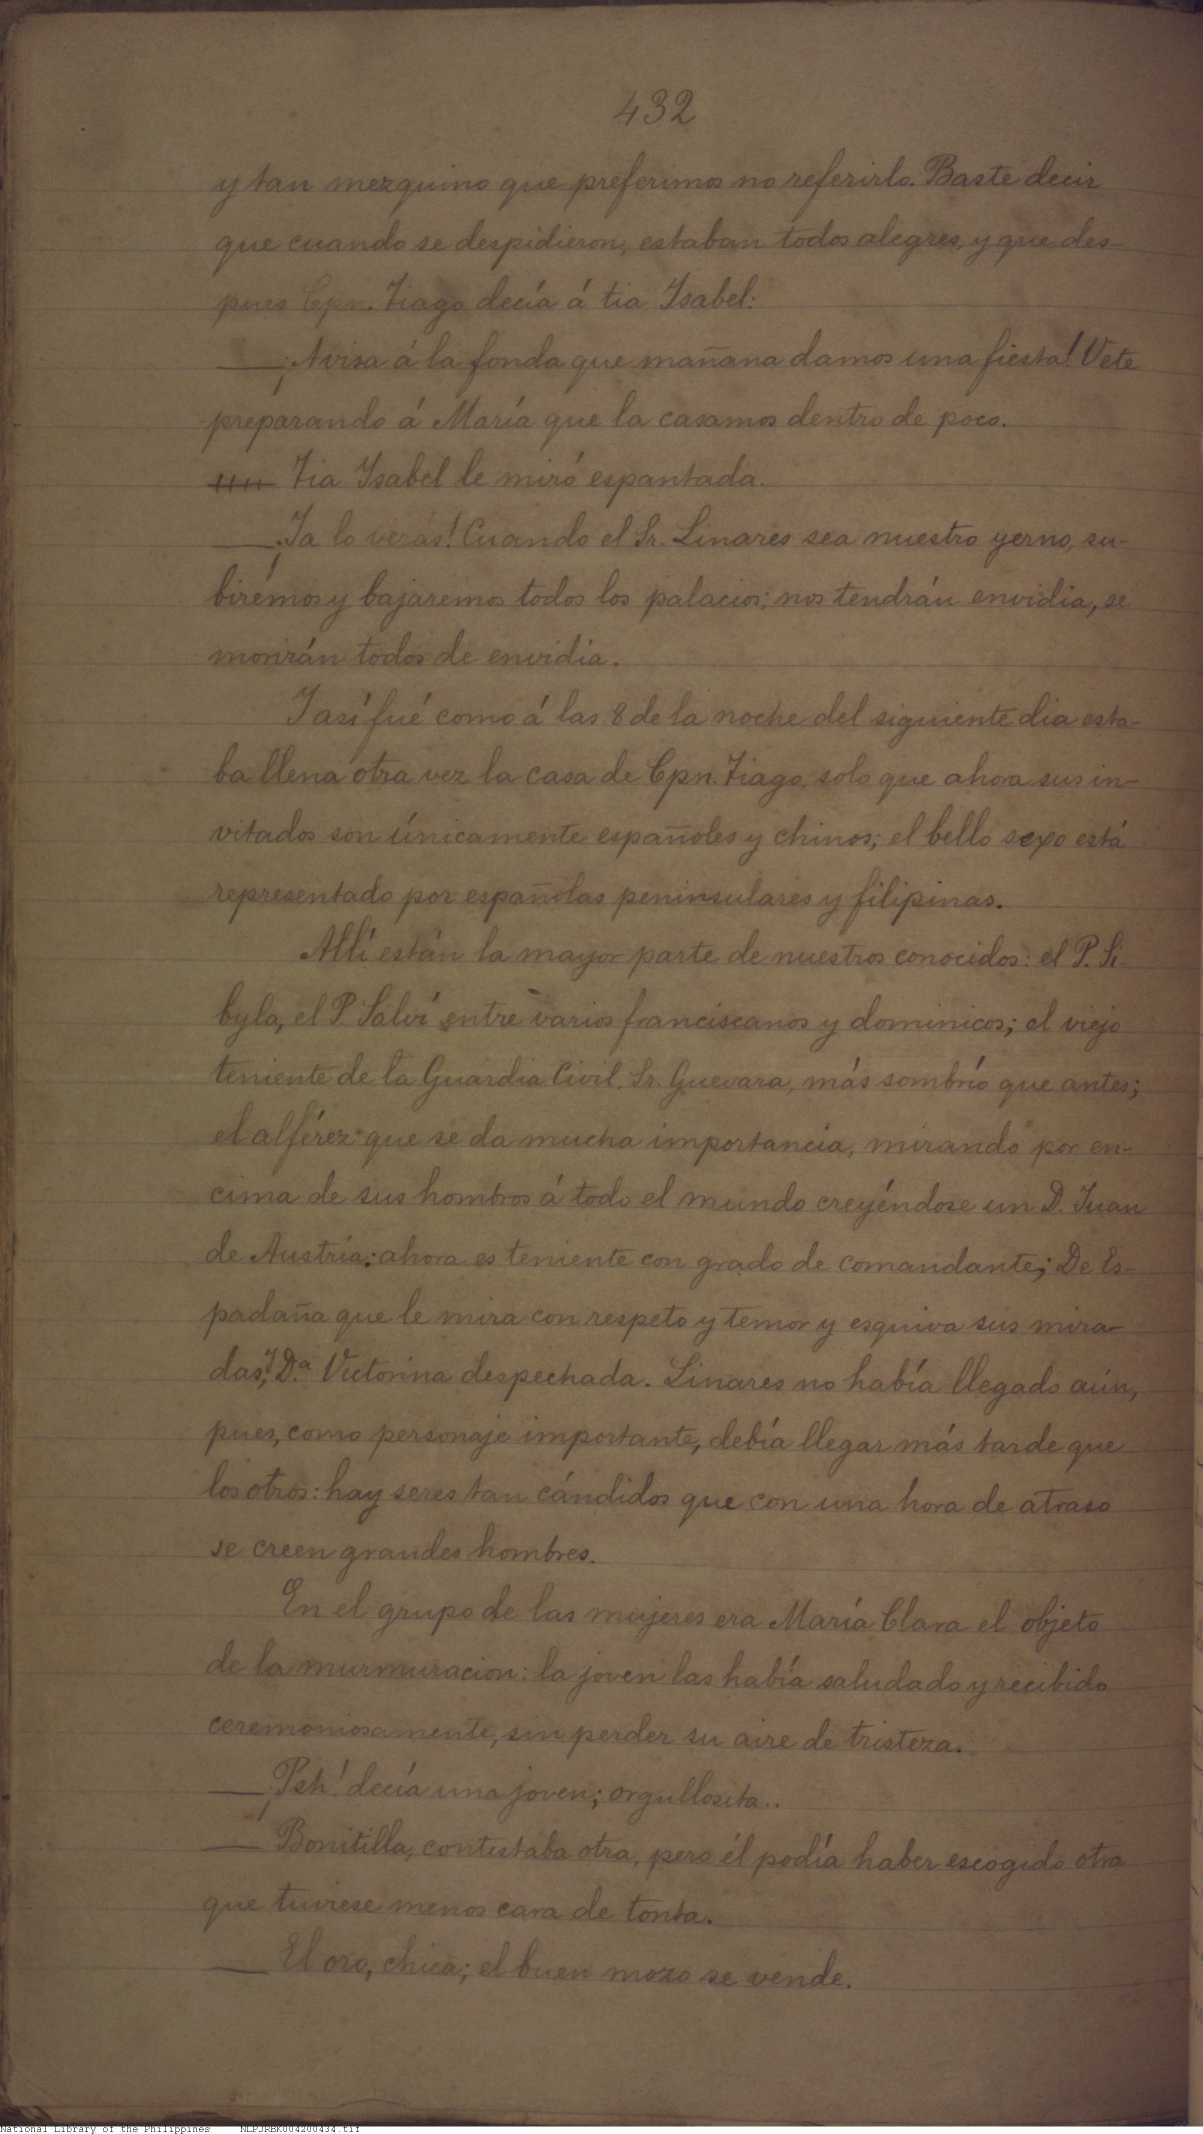 432
y tan mezquino que preferimos no referirlo. Baste decir
que cuando se despidieron, estaban todos alegres, y que des-
pues Cpn. Tiago decía á tia Ysabel:
—¡Avisa á la fonda que mañana damos una fiesta! Vete
preparando á María que la casamos dentro de poco.
Tia Ysabel le miró espantada.
—¡Ya lo verás! Cuando el Sr. Linares sea nuestro yerno, su-
birémos y bajaremos todos los palacios; nos tendrán envidia, se
morirán todos de envidia.
Y así fué como á las 8 de la noche del siguiente dia esta-
ba llena otra vez la casa de Cpn. Tiago, solo que ahora sus in-
vitados son únicamente españoles y chinos; el bello sexo está
representado por españolas peninsulares y filipinas.
Allí están la mayor parte de nuestros conocidos: el P. Si-
byla, el P. Salví entre varios franciscanos y dominicos; el viejo
teniente de la Guardia Civil, Sr. Guevara, más sombrío que antes;
el alférez que se da mucha importancia, mirando por en-
cima de sus hombros á todo el mundo creyéndose un D. Juan
de Austria; ahora es teniente con grado de comandante; De Es-
padaña que le mira con respeto y temor y esquiva sus mira-
das, y D.ª Victorina despechada. Linares no había llegado aún,
pues, como personaje importante, debía llegar más tarde que
los otros: hay seres tan cándidos que con una hora de atraso
se creen grandes hombres.
En el grupo de las mujeres era María Clara el objeto
de la murmuracion: la joven las había saludado y recibido
ceremoniosamente, sin perder su aire de tristeza.
—¡Psh! decía una joven; orgullosita..
— Bonitilla, contestaba otra, pero él podía haber escogido otra
que tuviese menos cara de tonta.
— El oro, chica; el buen mozo se vende.
National Library of the Philippines NLPJRBK004200434.tif